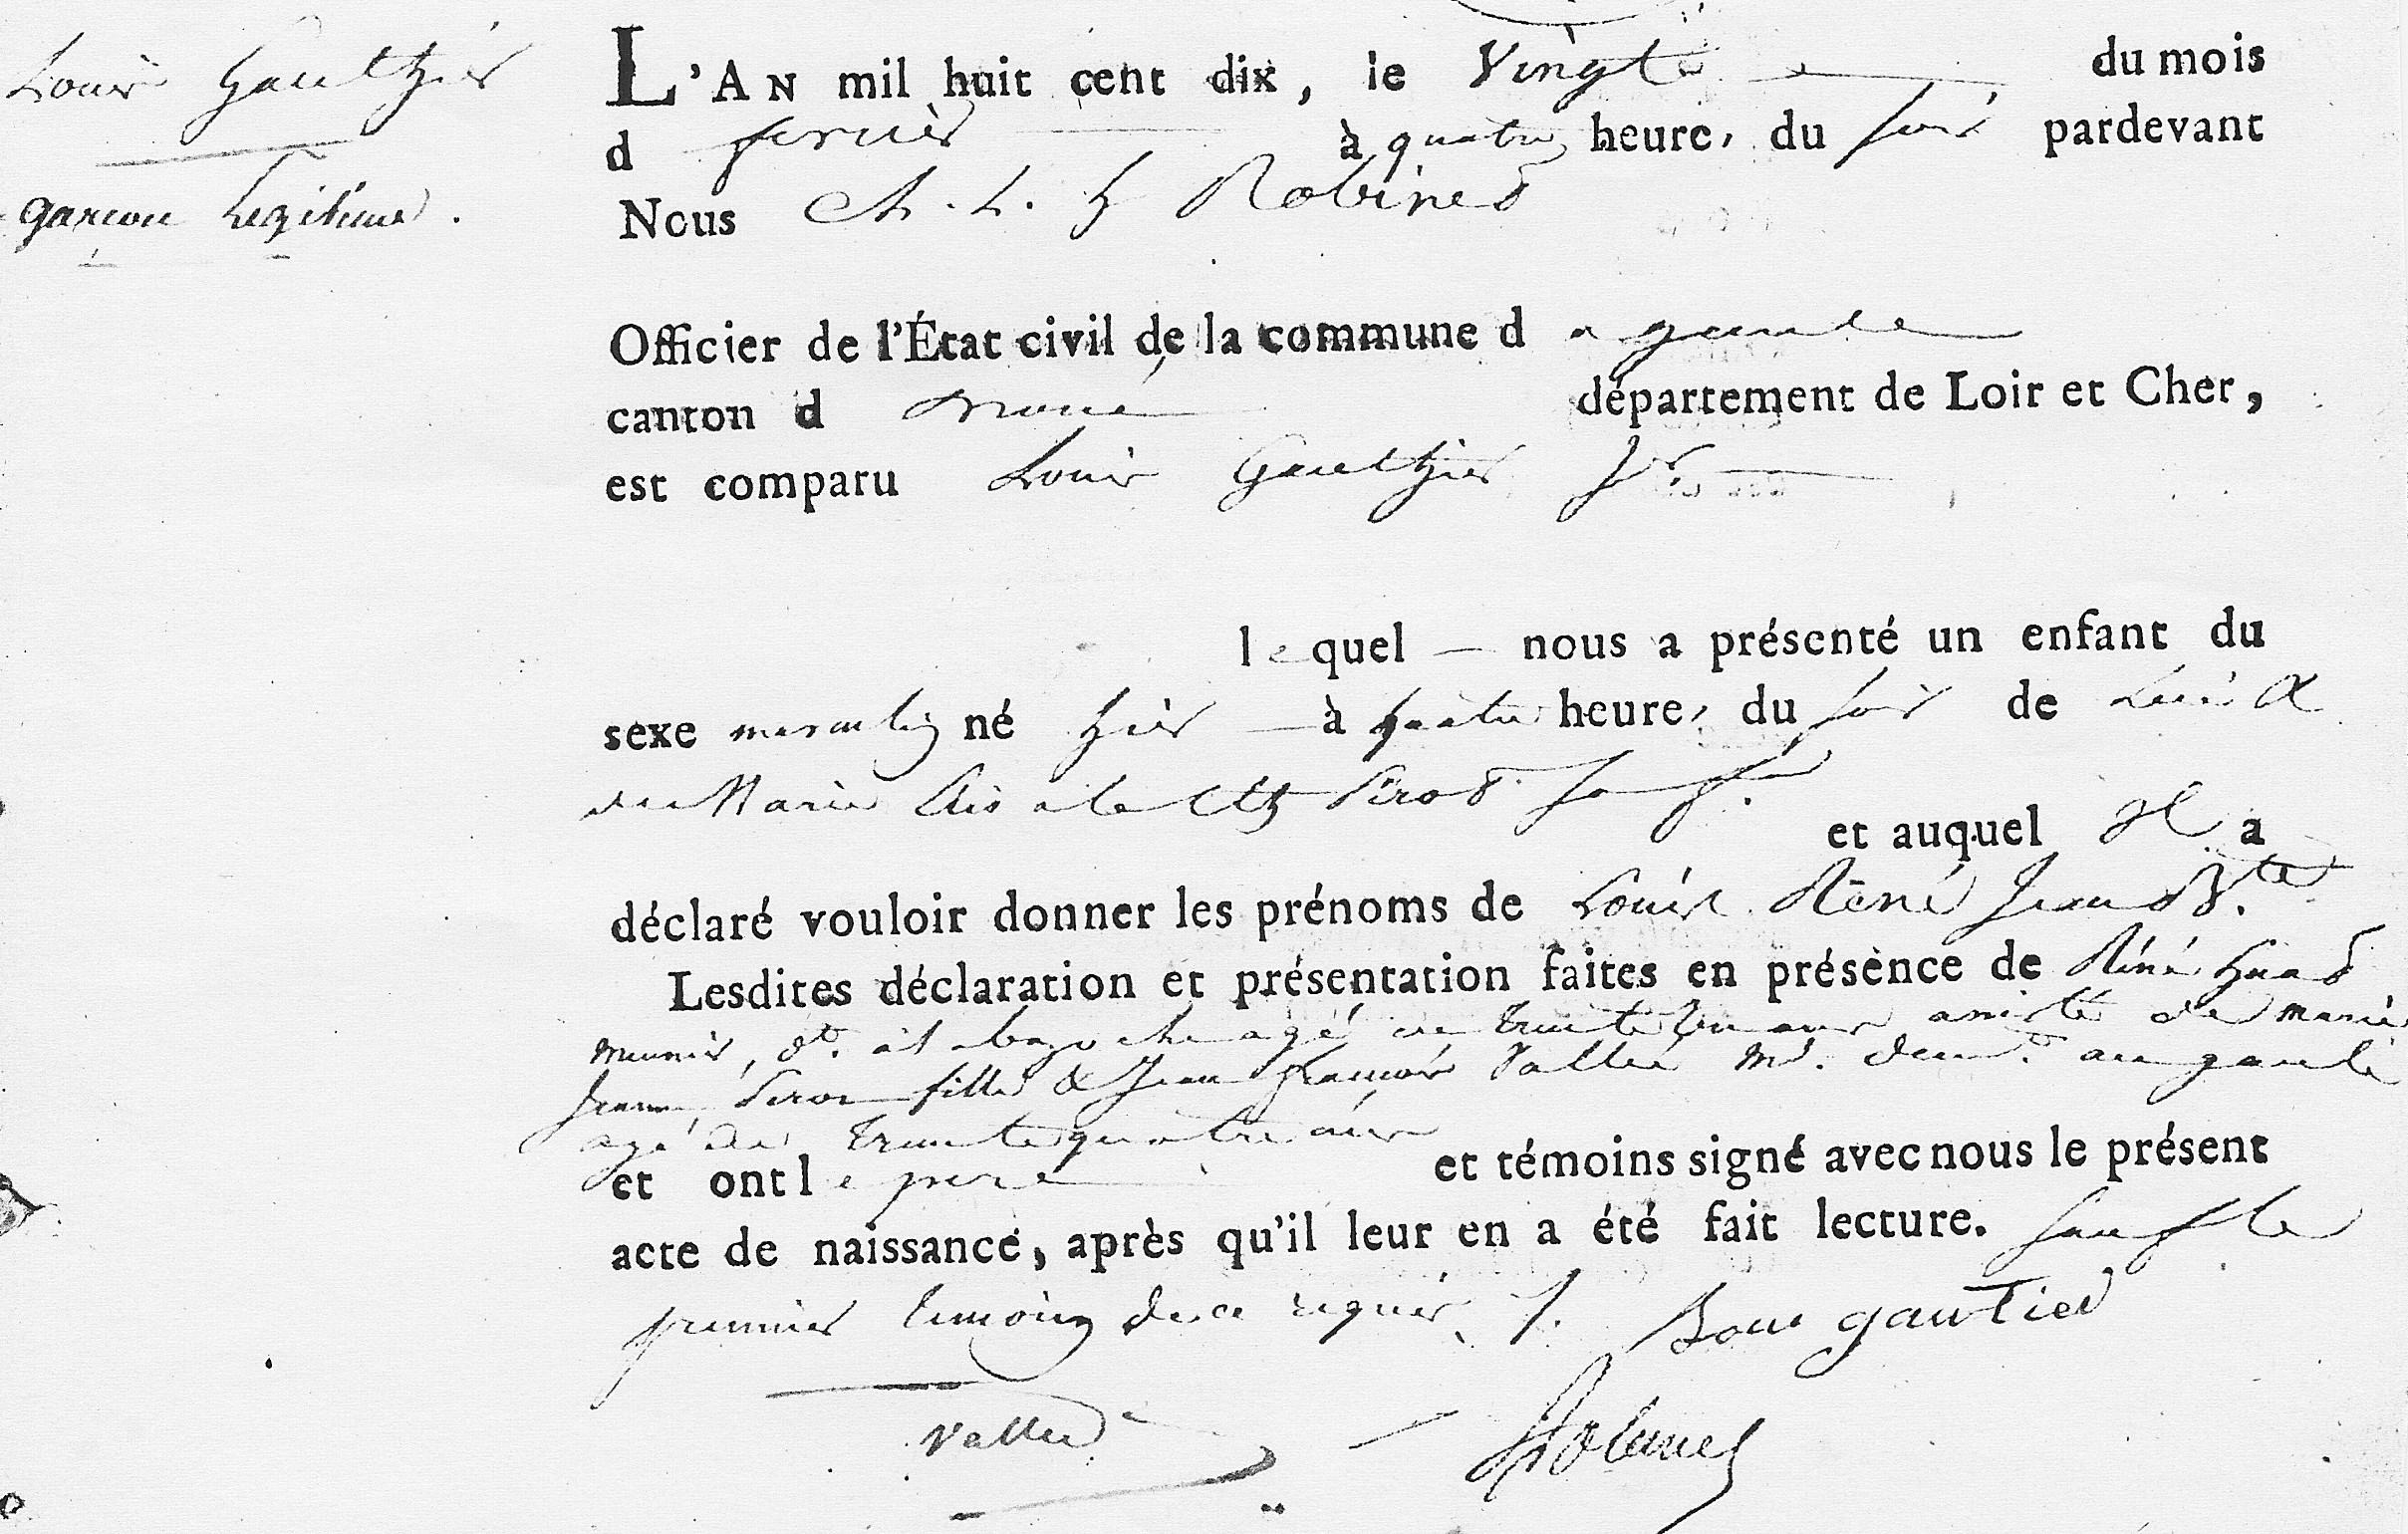 Louis Gaulthier
garcon legitime.
L'AN mil huit cent dix, le Vingt du mois
d fevrier à quatre heure, du soir pardevant
Nous Ch. L. h Robinet
Officier de l'État civil de la commune d
canton d département de Loir et Cher,
est comparu Louis Gaulthier
lequel — nous a présenté un enfant du
sexe masculin né hier — à quatre heure, du soir de Lui &
de Marie
et auquel Il a
déclaré vouloir donner les prénoms de Louis René Jean Bte
Lesdites déclaration et présentation faites en présènce de Réné
meunier, agé de trente ans assisté de marie
Jeanne fille & Jean francois Vallée Md. dem. au
agé de trente quatre ans
et ont le pere et témoins signé avec nous le présent
acte de naissance, après qu'il leur en a été fait lecture. sauf le
premier temoin de ce requis /. gautier
Vallée